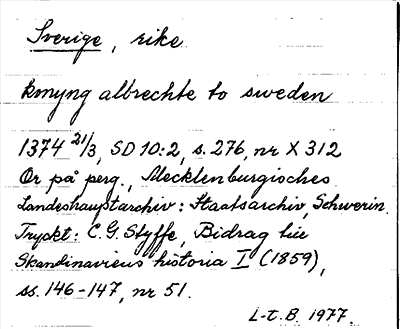 Sverige, rike
konyng albrechte to sweden
1374 21/3, SD 10:2, s. 276, nr X 312
Or på perg., Mecklenburgisches
Landeshauptarchiv: Staatsarchiv, Schwerin.
Tryckt: C.G. Styffe, Bidrag till
Skandinaviens historia I (1859),
ss. 146-147, nr 51.
L-t. B. 1977.